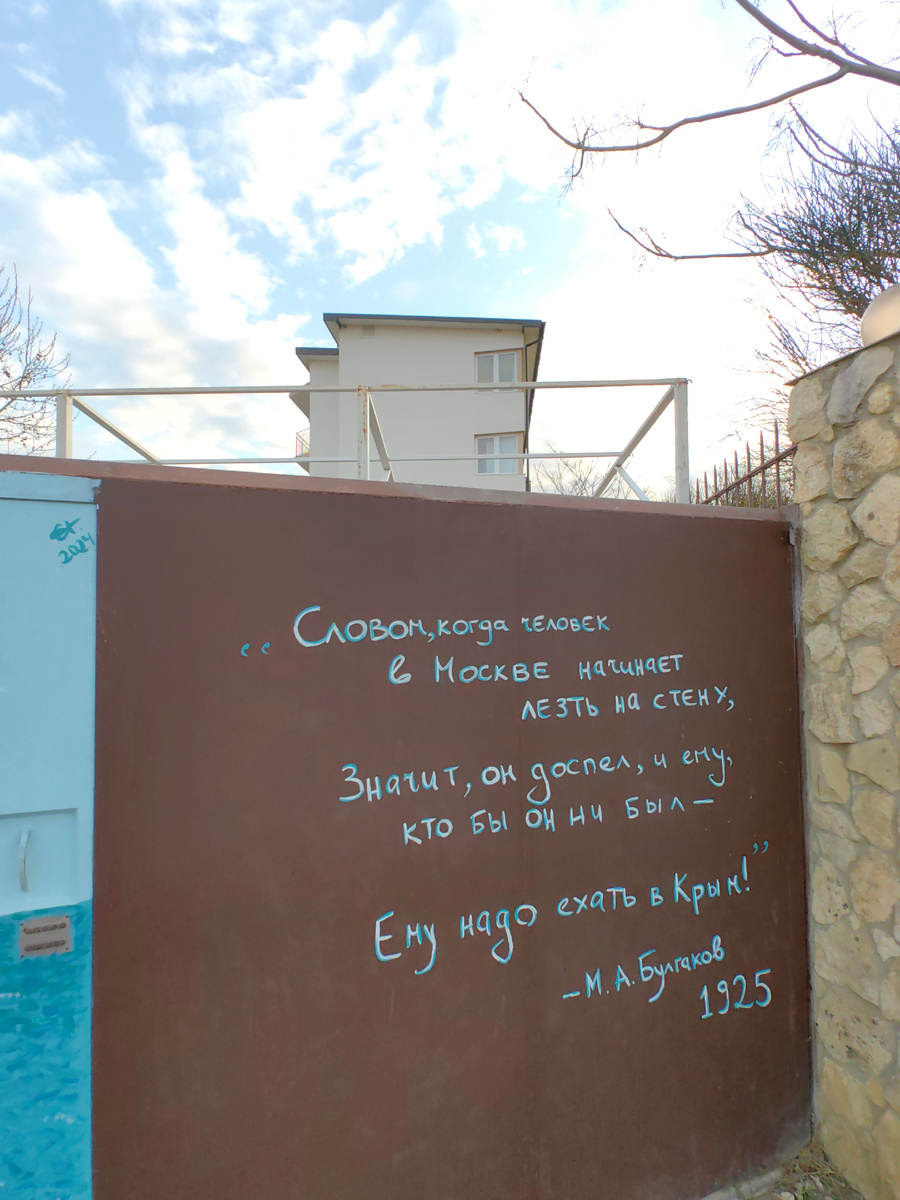 2024
„ Словом, когда человек
в Москве начинает
лезть на стену,
Значит, он доспел, и ему,
кто бы он ни был —
Ему надо ехать в Крым!”
– М. А. Булгаков
1925